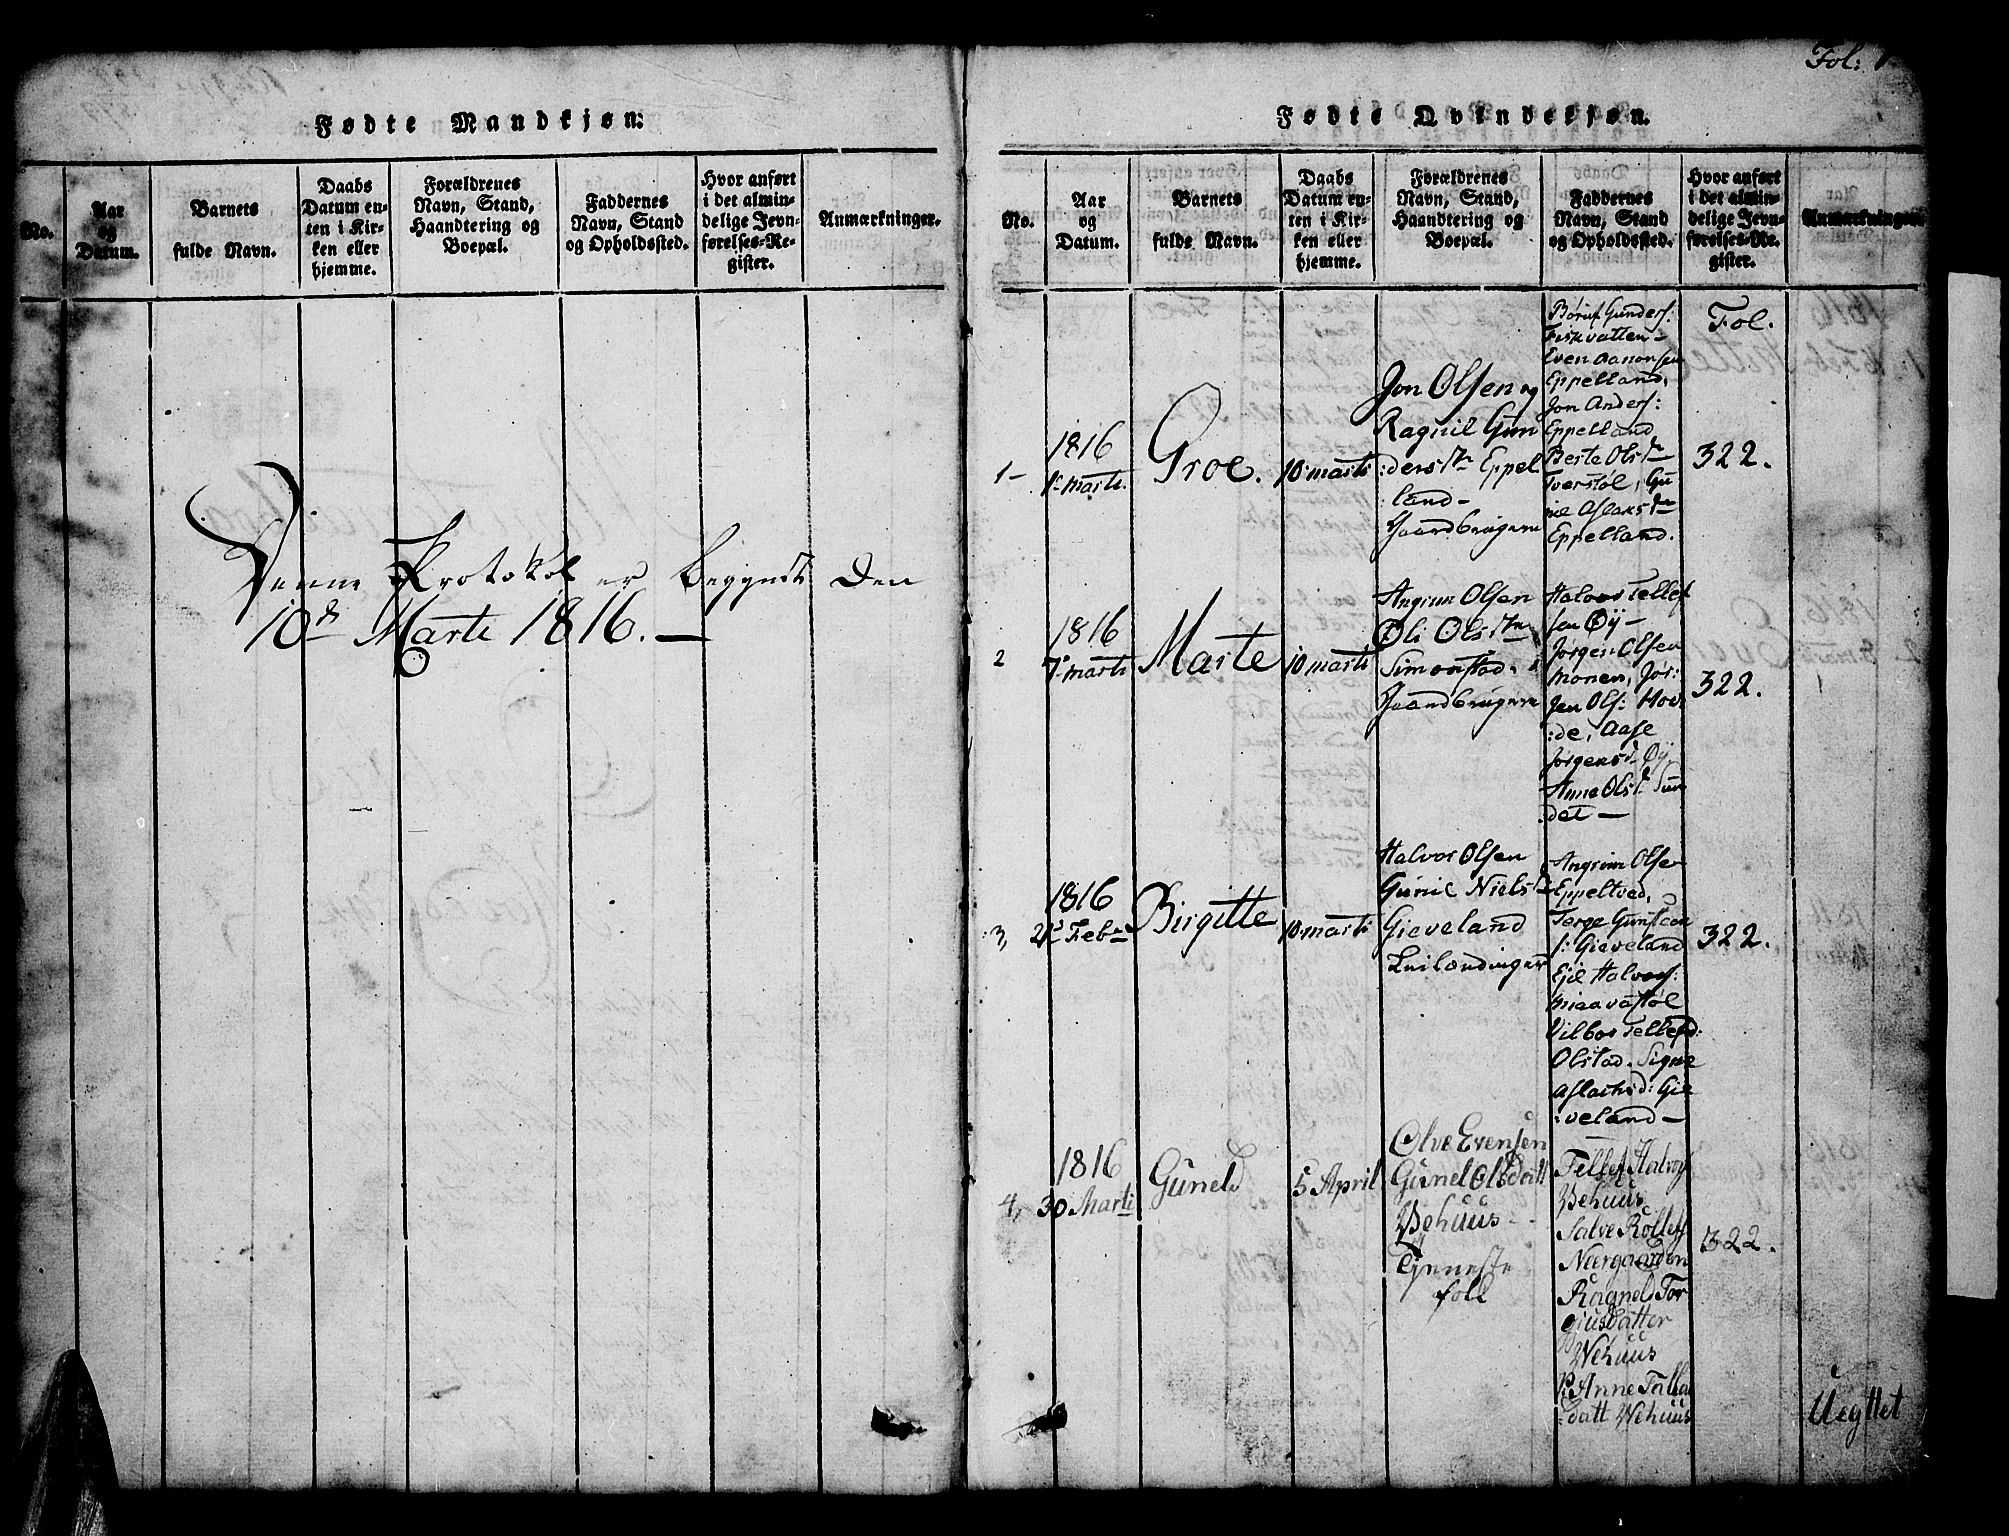 Fødte Mandkjøn:
No.
Aar
og
Datum.
Barnets
fulde Navn.
Daabs
Datum en-
ten i Kir-
ken eller
hjemme.
Forældrenes
Navn, Stand,
Haandtering og
Boepæl.
Faddernes
Navn, Stand
og Opholdssted.
Hvor anført
i det almin-
delige Jevn-
førelses-Re-
gister.
Anmærkninger.
Denne Protokol er begynt den
10de Marti 1816. —
Fol: 1
Fødte Qvindekjøn.
No.
Aar
og
Datum.
Barnets
fulde Navn.
Daabs
Datum en-
ten i Kir-
ken eller
hjemme.
Forældrenes
Navn, Stand,
Haandtering og
Boepæl.
Faddernes
Navn, Stand
og Opholdssted.
Hvor anført
i det almin-
delige Jevn-
førelses-Re-
gister.
Anmærkninger.
1 -
1816
1 Marti.
Groe.
10 marti
Jon Olsen og
Ragnil Gun
:ders Dtr Eppel
land -
Gaardbrugere
Gunders:
Fiskvatten -
Even Aanonsen
Eppelland,
Jon Anders:
Eppelland
Berte Ols Dtr
Tverstøl, Gu
nil Aslaks Dtr
Eppelland.
Fol.
322.
2
1816
7 marti
Marte
10 marti
Angrim Olsen
Oli Ols Dtr
Simonstad.
Gaardbrugere
Halvor Tellef
sen Øy -
Jørgen Olsen
Monen, Jør:
gen Ols: Hov
:de, Aase
Jørgensd. Øy,
Anne Olsd. Sun
det —
322.
3,
1816
21 Feb
Birgitte
10 marti
Halvor Olsen
Gunil Niels D
Gieveland
Leilændinger
Angrim Olsen
Eppeltved,
Terge Gunsteen
s: Gieveland
Ejel Halvors:
Miaavastøl
Vilbor Tellefd:
Olstad. Signe
Aslachsd: Gie
:veland —
322.
4,
1816
30 Marti
Guneld
5 April
Olve Evensen
Gunel Olsdatt
Vehuus -
Tjeneste
folk
Tellef Halvors
Vehuus
Salve Rollefs
Neergaarden
Ragnel Tor
giusdatter
Wehuus
Anne Tolla
:datt Wehuus
322.
Uegttet